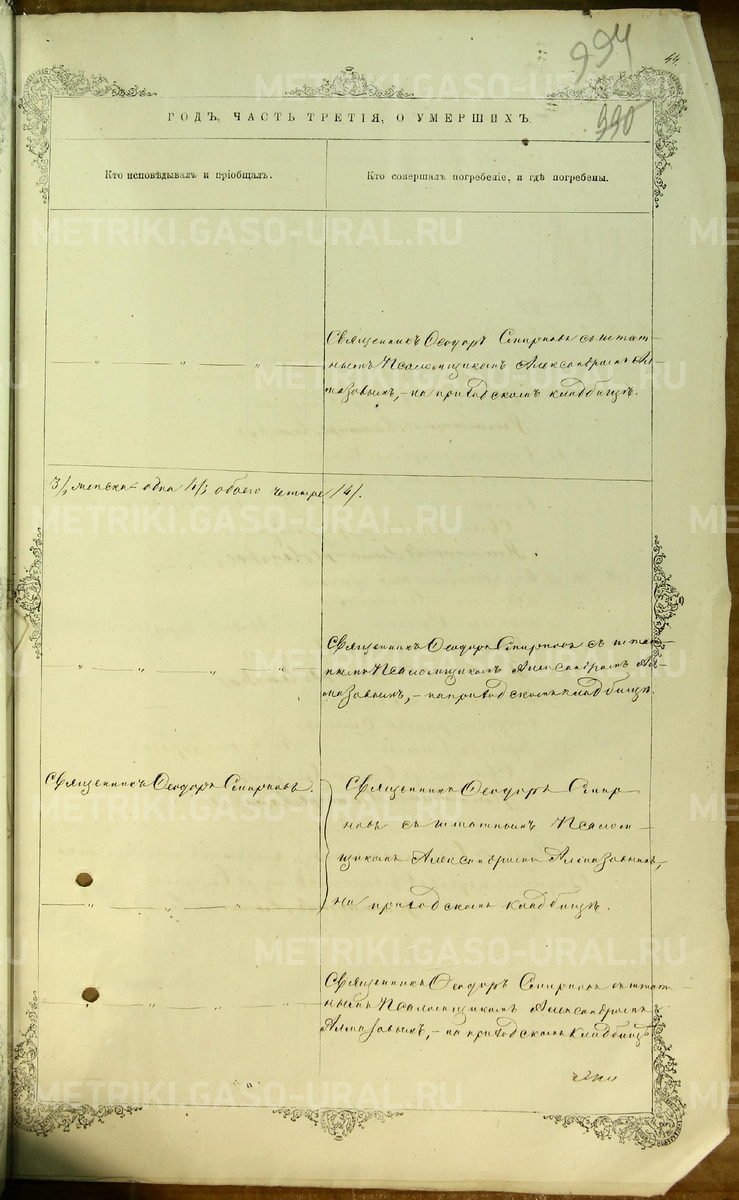 994
44.
990
ГОДЪ, ЧАСТЬ ТРЕТІЯ, О УМЕРШИХЪ.
Кто исповѣдывалъ и пріобщалъ.
Кто совершалъ погребеніе, и гдѣ погребены.
Священникъ Ѳеодоръ Смирновъ съ штат-
" " "
нымъ Псаломщикомъ Александромъ Ал-
мазовымъ, – на приходскомъ кладбищѣ.
3/, женска одна /1/, обоего четыре /4/.
Священникъ Ѳеодоръ Смирновъ съ штат-
" " "
нымъ Псаломщикомъ Александромъ Ал-
мазовымъ, – на приходскомъ кладбищѣ.
Священникъ Ѳеодоръ Смирновъ.
Священникъ Ѳеодоръ Смир
новъ съ штатнымъ Псалом-
щикомъ Александромъ Алмазовымъ,
" " "
на приходскомъ кладбищѣ.
Священникъ Ѳеодоръ Смирновъ съ штат-
" " "
нымъ Псаломщикомъ Александромъ
Алмазовымъ, – на приходскомъ кладбищѣ
METRIKI.GASO-URAL.RU